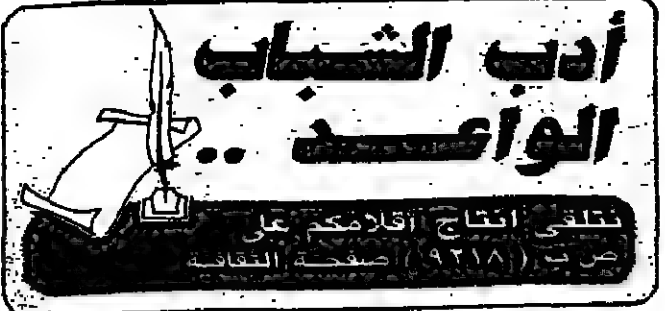 أدب الشباب
الواعد ..
نتلقى انتاج اقلامكم على
ص ب (٩٢١٨) صفحة الثقافة